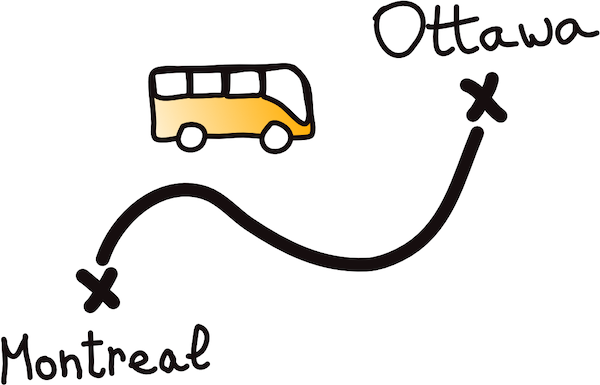 Ottawa
Montreal